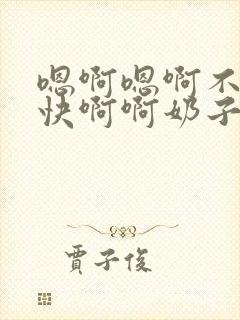 嗯啊嗯啊不
快啊啊奶子
贾子俊